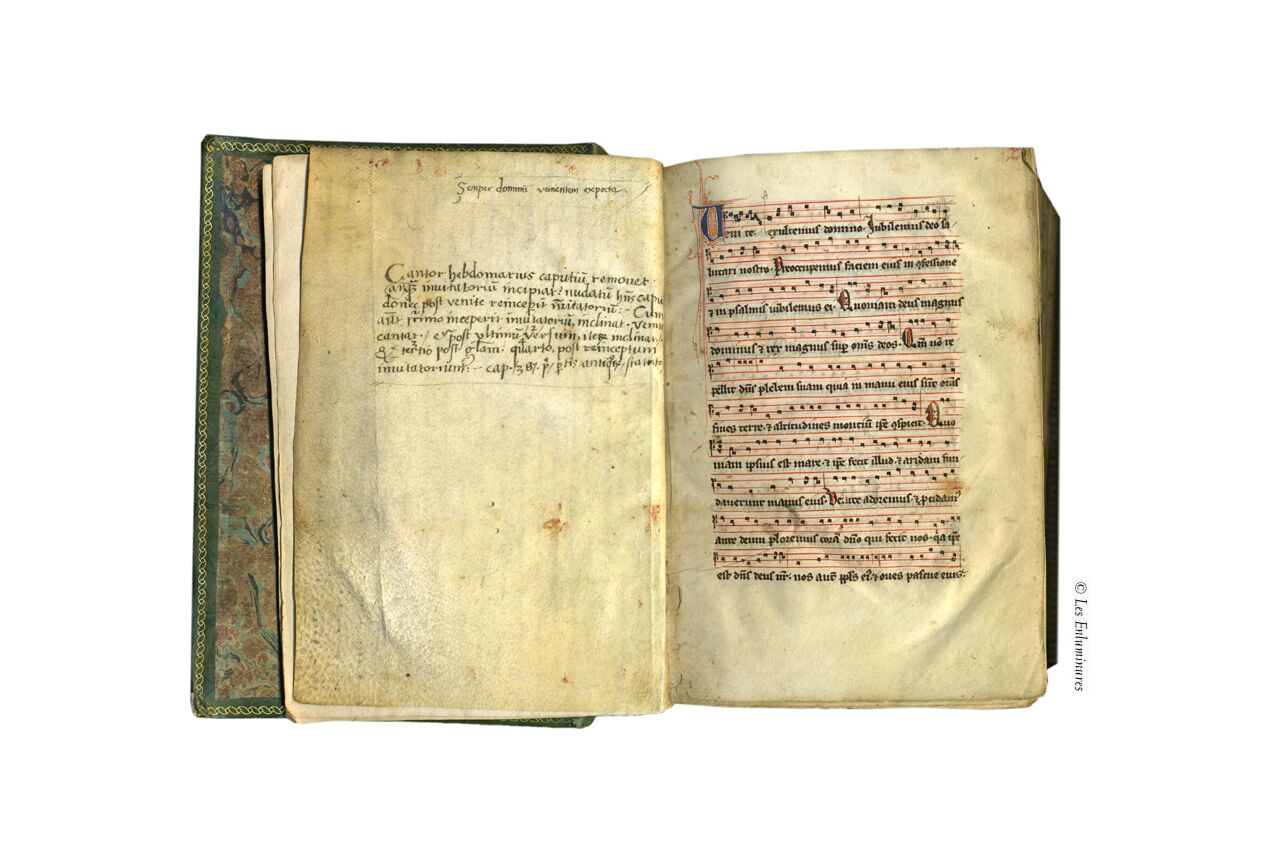 Semper domini venientem expecta.
Cantor hebdomarius caputiū removet
inuitatoriū incipiat nudatū
donec post venite reincepit
aūt primo inceperit inuitatoriū, inclinat. Veni
cantat. post vltimū versum. inclinat.
tertio post gla͞m. quarto, post reinceptum
inuitatorium:- cap.
Venite exultemus domino. Iubilemus deo sa
lutari nostro. Preoccupemus faciem eius in ꝯfessione
⁊ in psalmis iubilemus ei. Quoniam deus magnus
dominus ⁊ rex magnus sup om̄s deos. Qm̄ nō re
pellit dn̄s plebem suam quia in manu eius sūt om̄s
fines terre. ⁊ altitudines montiū ip̄e ꝯspicit. Quo
niam ipsius est mare. ⁊ ip̄e fecit illud. ⁊ aridam fun
dauerunt manus eius. Venite adoremus. ⁊ ꝓcidam᷒
ante deum ploremus corā dn̄o qui fecit nos. q̄a ip̄e
est dn̄s deus nr̄. nos autē ppl̄s ei᷒. ⁊ oues pascue eius.
© Les Enluminures